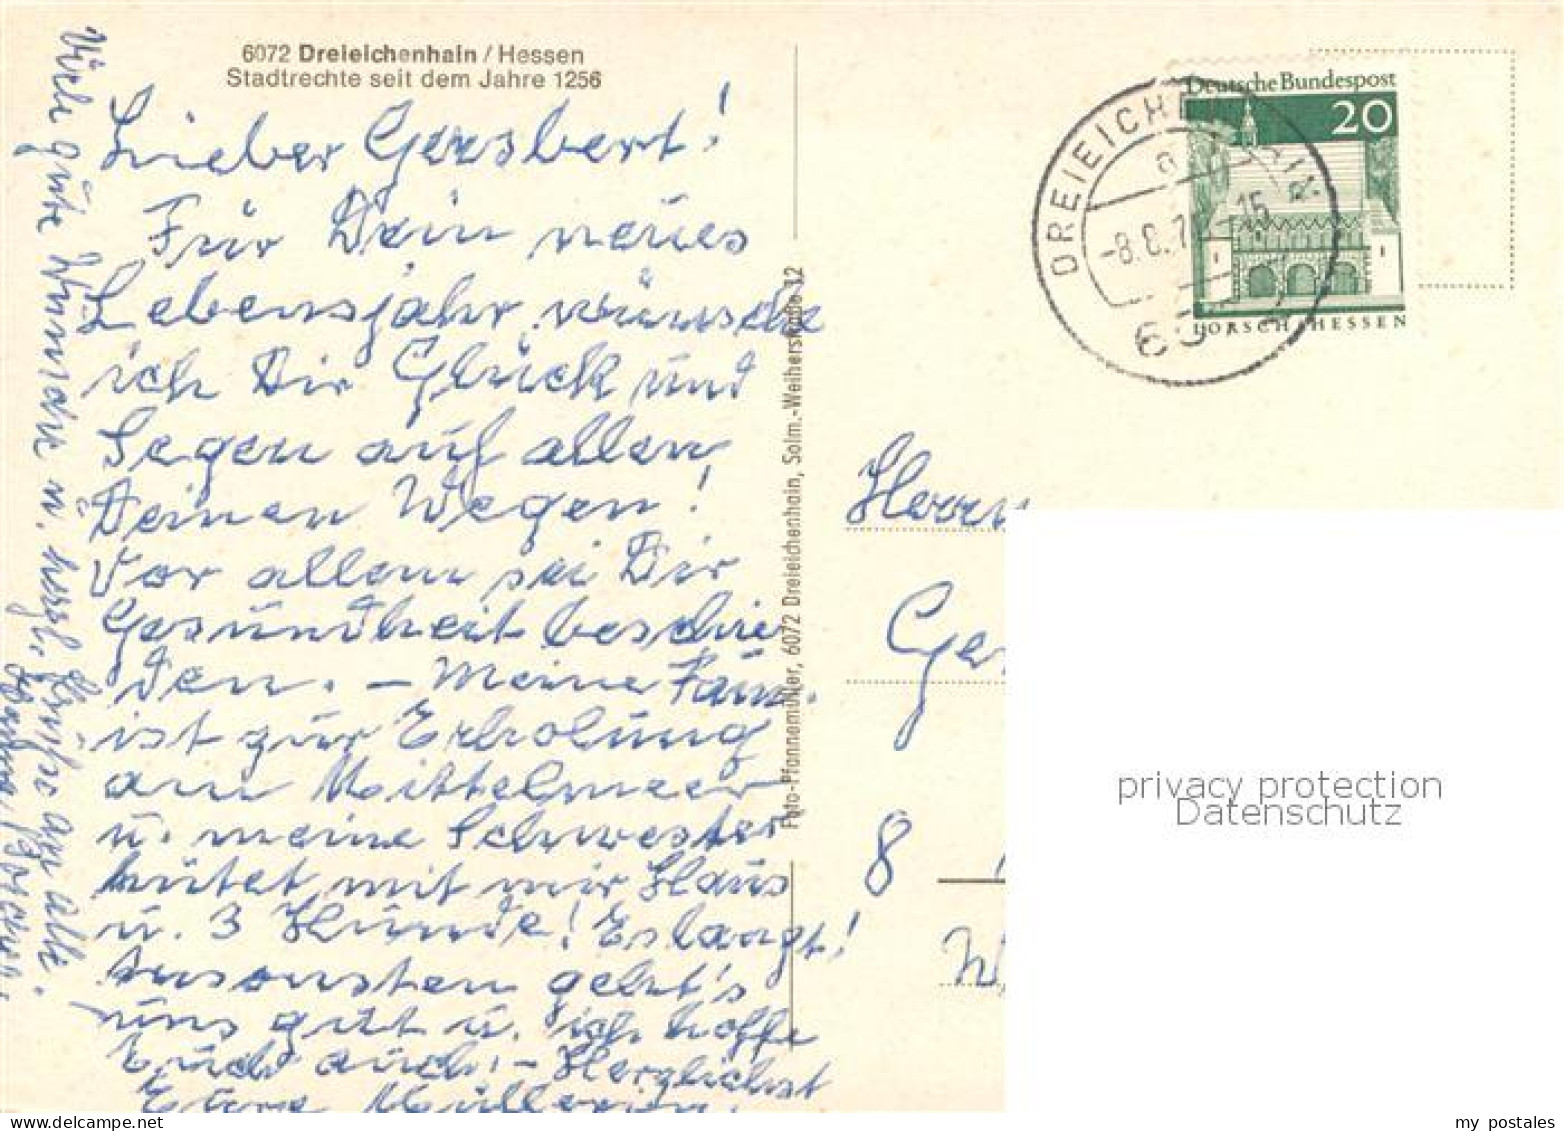 6072 Dreieichenhain / Hessen
Stadtrechte seit dem Jahre 1256
Lieber Gersbert!
Für Dein neues
Lebensjahr wünsche
ich Dir Glück und
Segen auf allen
Deinen Wegen!
Vor allem sei Dir
Gesundheit beschie
den. – Meine Fam.
ist zur Erholung
am Mittelmeer
u. meine Schwester
hütet mit mir Haus
u. 3 Hunde! Es langt!
Ansonsten geht's
uns gut u. ich hoffe
Euch auch! – Herzlichst
Eure Müllerin.
Viele gute Wünsche u. herzl. Grüße an alle
Foto-Pfannemüller, 6072 Dreieichenhain, Solm.-Weiherstraße 12
Deutsche Bundespost
20
LORSCH / HESSEN
DREIEICHENHAIN
-8.8.7 -15
Herrn
Ger
8
privacy protection
Datenschutz
my postales